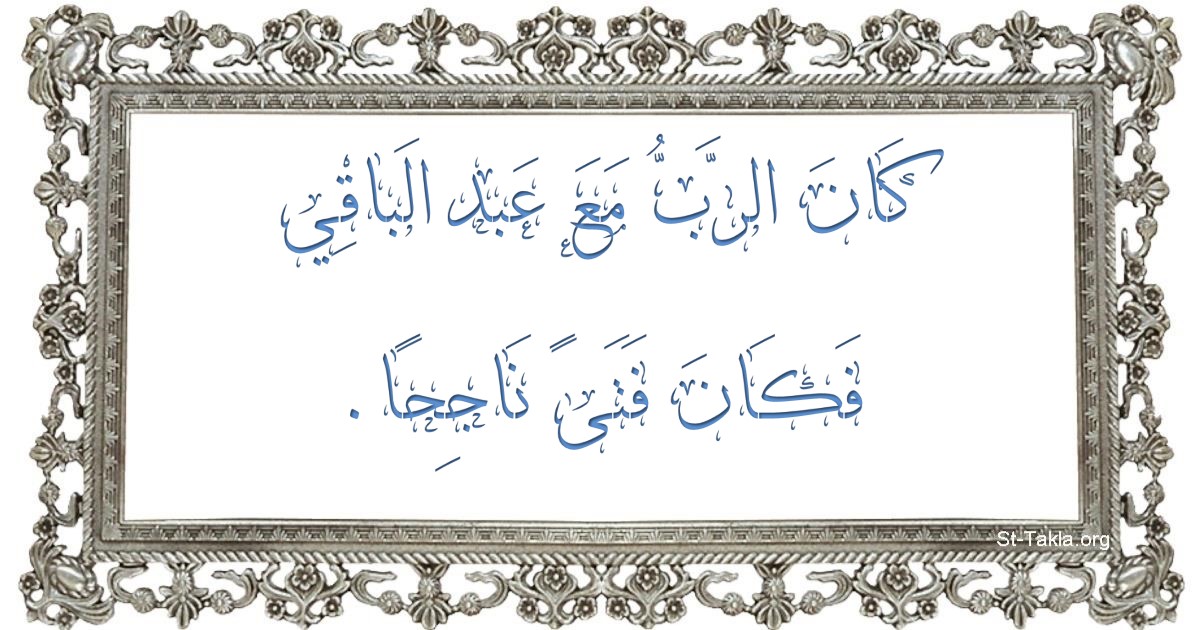 كَانَ الرَّبُّ مَعَ عَبْد الَباقِْي
فَكَانَ فَتَىً نَاجِحًا .
St-Takla.org